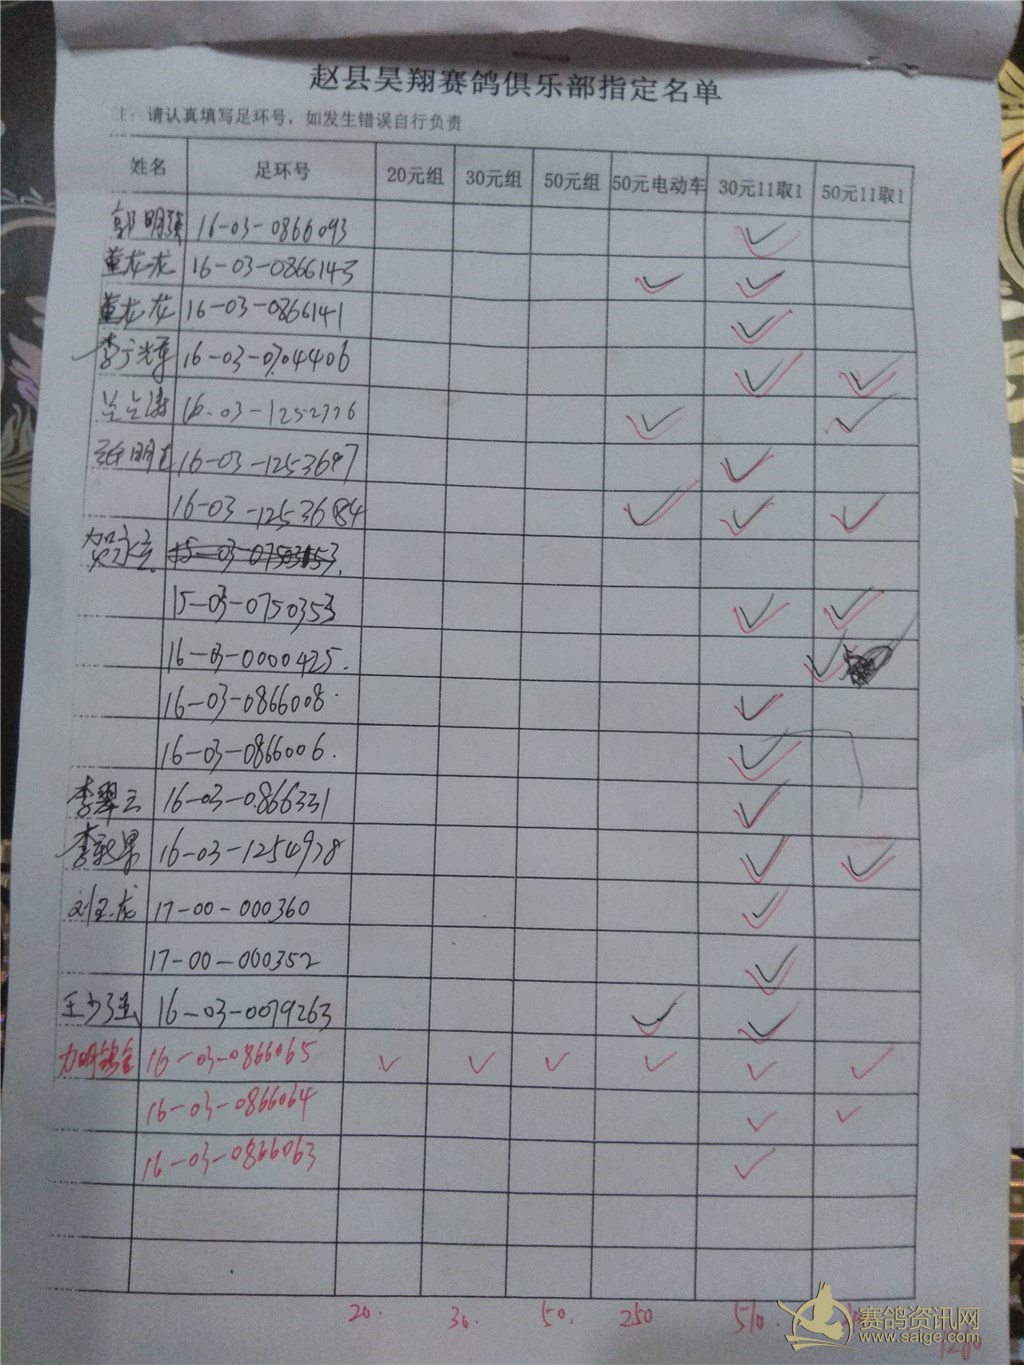 赵县昊翔赛鸽俱乐部指定名单
注：请认真填写足环号，如发生错误自行负责
姓名 足环号 20元组 30元组 50元组 50元电动车 30元11取1 50元11取1
郭明强 16-03-0866093 ✓
董龙龙 16-03-0866143 ✓ ✓
董龙龙 16-03-0866141 ✓
李广辉 16-03-0704406 ✓ ✓
16-03-1252776 ✓ ✓
张明 16-03-1253697 ✓
16-03-1253684 ✓ ✓ ✓
贺永立
15-03-0750353 ✓ ✓
16-03-0000425. ✓
16-03-0866008. ✓
16-03-0866006. ✓
李翠云 16-03-0866331 ✓
李 果 16-03-1254978 ✓ ✓
刘玉龙 17-00-000360 ✓
17-00-000352 ✓
王少强 16-03-0079263 ✓ ✓
16-03-0866065 ✓ ✓ ✓ ✓ ✓ ✓
16-03-0866064 ✓ ✓
16-03-0866063 ✓
20. 30. 50. 250 510.
赛鸽资讯网
www.saige.com